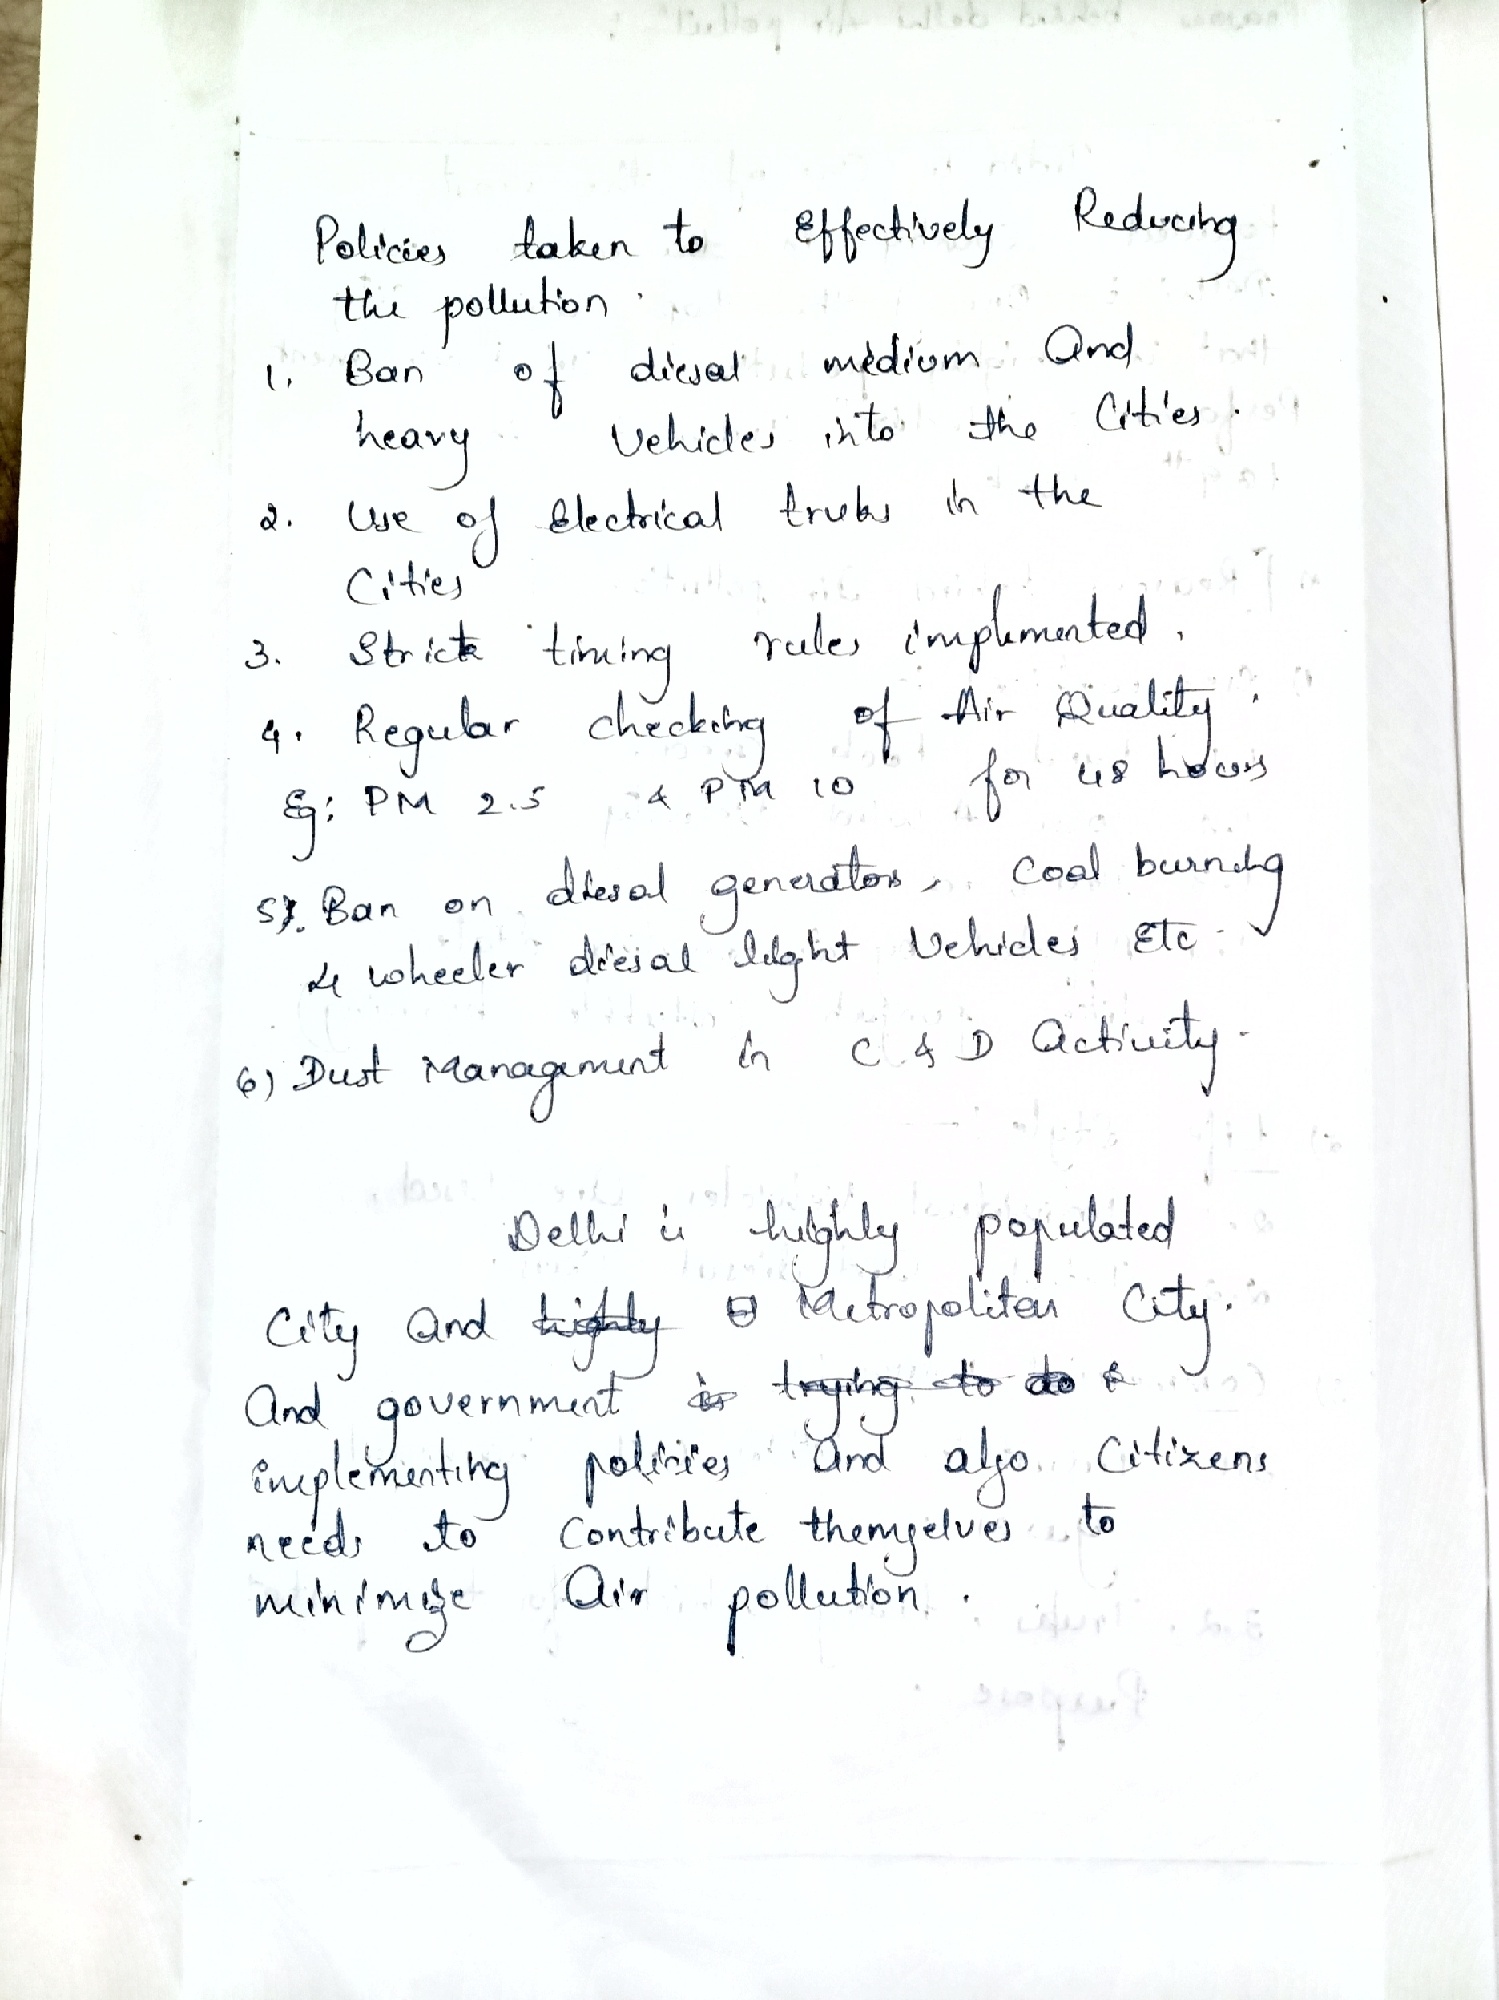 Policies taken to Effectively Reducing
the pollution.
1. Ban of diesal medium and
heavy vehicles into the Cities.
2. Use of Electrical truks in the
Cities
3. Strict timing rules implemented.
4. Regular checking of Air Quality.
Eg: PM 2.5 & PM 10 for 48 hours
5). Ban on diesal generators, Coal burning
4 wheeler diesal light Vehicles Etc.
6) Dust Management in C & D Activity.
Delhi is highly populated
City and highly Metropolitan City.
And government is trying to do
implementing policies and also Citizens
needs to Contribute themselves to
minimize Air pollution.